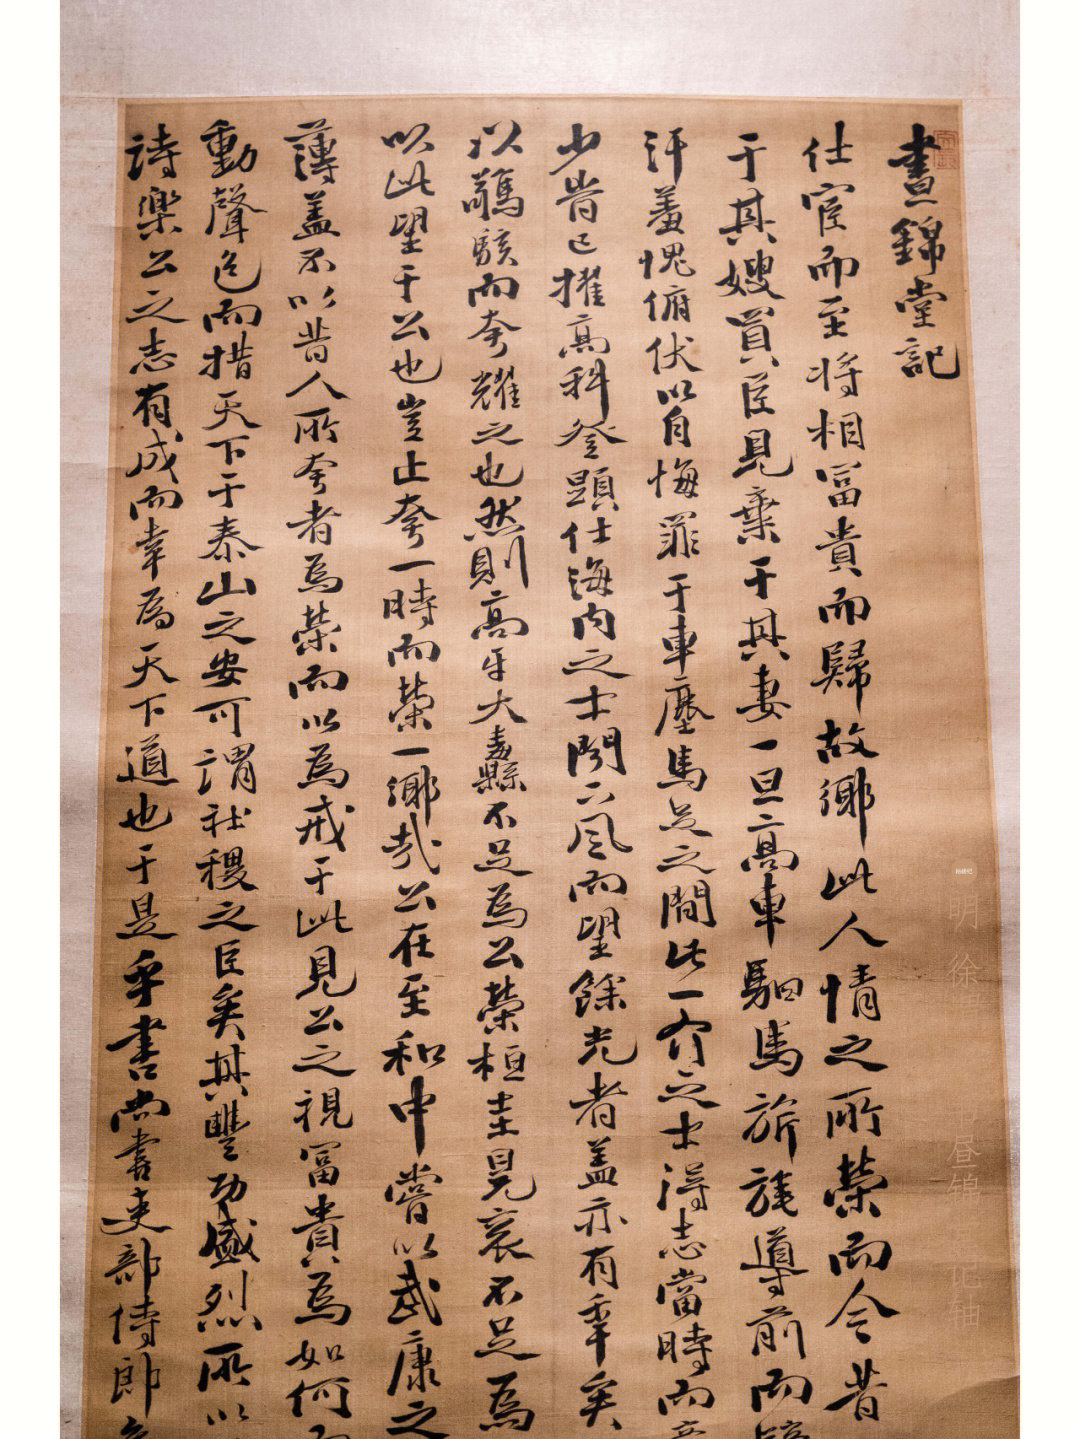 晝錦堂記
仕宦而至將相富貴而歸故鄉此人情之所榮而今昔
于其嫂買臣見棄于其妻一旦高車駟馬旂旄導前而
汗羞愧俯伏以自悔罪于車塵馬足之間此一介之士得志當時而
少時已擢高科登顯仕海內之士聞下風而望餘光者蓋亦有年矣
以驚駭而夸耀之也然則高牙大纛不足為公榮桓圭冕袞不足為
以此望于公也豈止夸一時而榮一鄉哉公在至和中嘗以武康之
薄蓋不以昔人所夸者為榮而以為戒于此見公之視富貴為如何
動聲色而措天下于泰山之安可謂社稷之臣矣其豐功盛烈所以
詩樂公之志有成而幸為天下道也于是乎書尚書吏部侍郎
明 徐
昼锦 记轴